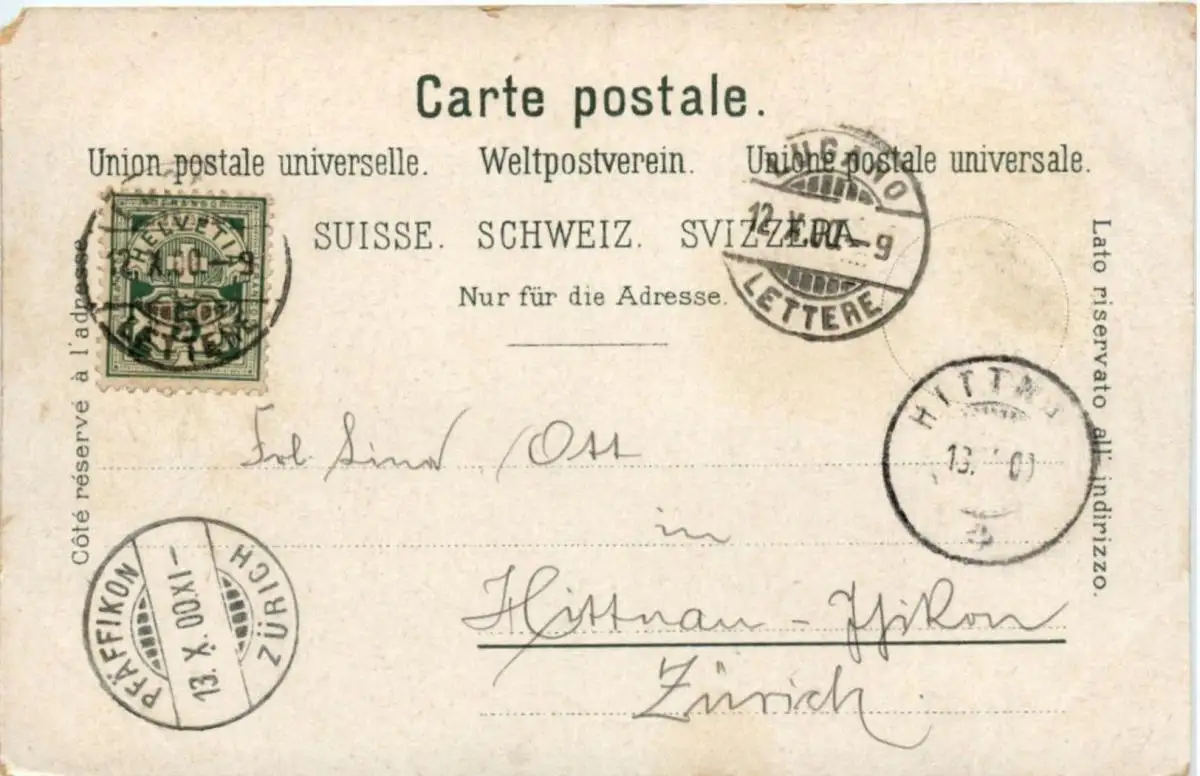 Carte postale.
Union postale universelle. Weltpostverein. Unione postale universale.
SUISSE. SCHWEIZ. SVIZZERA.
Nur für die Adresse.
Côté réservé à l'adresse
Lato riservato all' indirizzo.
HELVETIA
5
12 X 00-9
LETTERE
LUGANO
12 X 00-9
LETTERE
HITTNAU
13. 00
Frl. Ott
in
Hittnau - Isikon
Zürich.
PFÄFFIKON
13. X. 00 XI-
ZÜRICH